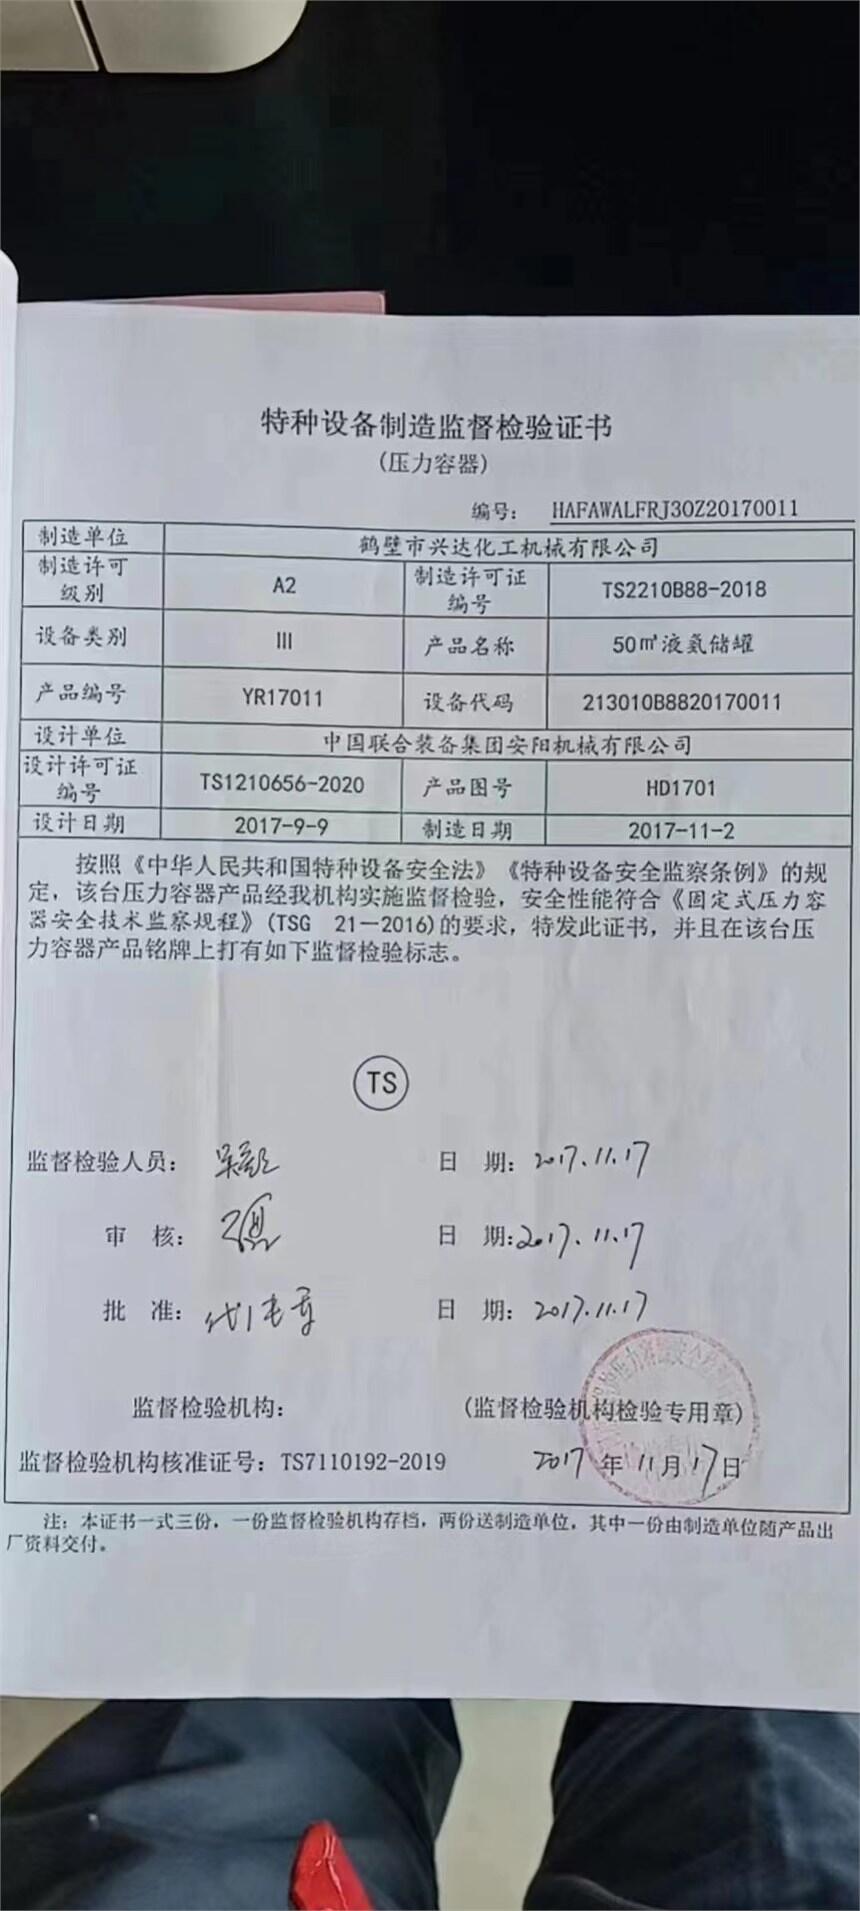 特种设备制造监督检验证书
(压力容器)
编号： HAFAWALFRJ3OZ20170011
制造单位 鹤壁市兴达化工机械有限公司
制造许可级别 A2 制造许可证编号 TS2210B88-2018
设备类别 III 产品名称 50㎥液氨储罐
产品编号 YR17011 设备代码 213010B8820170011
设计单位 中国联合装备集团安阳机械有限公司
设计许可证编号 TS1210656-2020 产品图号 HD1701
设计日期 2017-9-9 制造日期 2017-11-2
按照《中华人民共和国特种设备安全法》《特种设备安全监察条例》的规
定，该台压力容器产品经我机构实施监督检验，安全性能符合《固定式压力容
器安全技术监察规程》(TSG 21－2016)的要求，特发此证书，并且在该台压
力容器产品铭牌上打有如下监督检验标志。
TS
监督检验人员： 日 期：2017.11.17
审 核： 日 期：2017.11.17
批 准： 日 期：2017.11.17
监督检验机构： (监督检验机构检验专用章)
监督检验机构核准证号：TS7110192-2019 2017年11月17日
注：本证书一式三份，一份监督检验机构存档，两份送制造单位，其中一份由制造单位随产品出
厂资料交付。